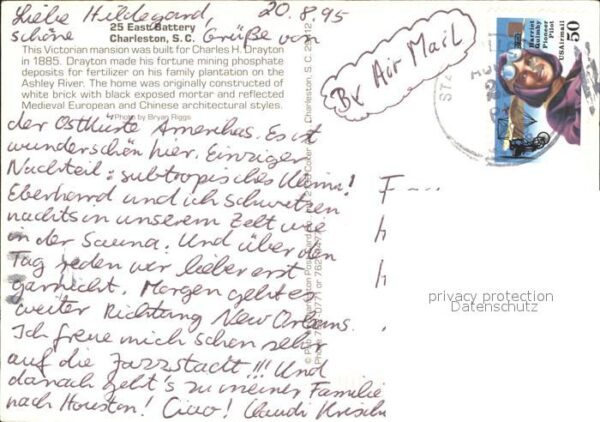 Liebe Hildegard, 20.8.95
schöne Grüße von
25 East Battery
Charleston, S. C.
This Victorian mansion was built for Charles H. Drayton
in 1885. Drayton made his fortune mining phosphate
deposits for fertilizer on his family plantation on the
Ashley River. The home was originally constructed of
white brick with black exposed mortar and reflected
Medieval European and Chinese architectural styles.
Photo by Bryan Riggs
der Ostküste Amerikas. Es ist
wunderschön hier. Einziger
Nachteil: subtropisches Klima!
Eberhard und ich schwitzen
nachts in unserem Zelt wie
in der Sauna. Und über den
Tag reden wir lieber erst
garnicht. Morgen geht es
weiter Richtung New Orleans.
Ich freue mich schon sehr
auf die Jazzstadt!!! Und
danach geht's zu meiner Familie
nach Houston! Ciao! Claudi
By Air Mail
Harriet
Quimby
Pioneer
Pilot
USAirmail
50
Charleston, S.C. 29412
privacy protection
Datenschutz